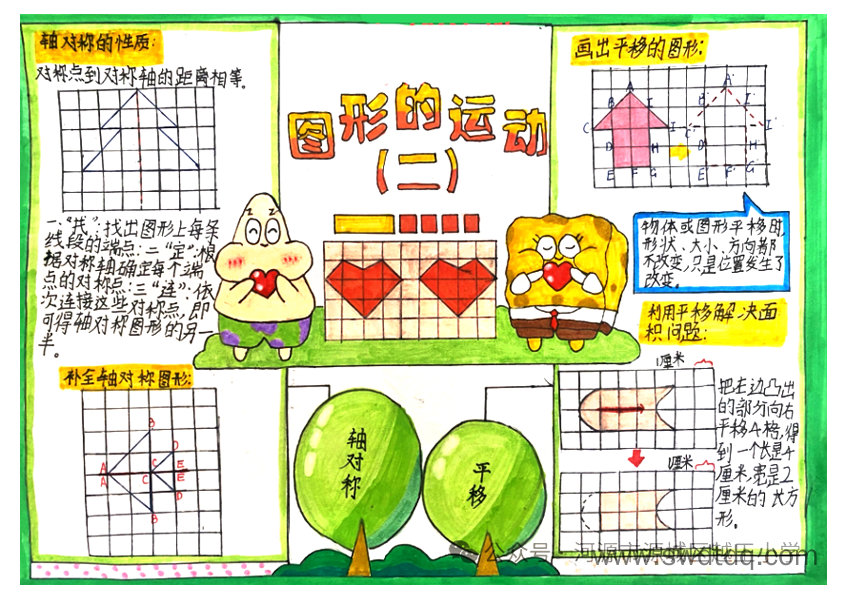 轴对称的性质:
对称点到对称轴的距离相等。
一、“找”:找出图形上每条
线段的端点:二“定”:根
据对称轴确定每个端
点的对称点:三“连”:依
次连接这些对称点,即
可得轴对称图形的另一
半。
补全轴对称图形:
B
D
A
C
E
A
C
E
D
B
图形的运动
(二)
z
z
轴对称
平移
画出平移的图形:
A
A'
B
I
B'
I'
C
C'
I'
D
H
D'
H'
E
F
G
E'
F'
G'
物体或图形平移时,
形状、大小、方向都
不改变,只是位置发生了
改变。
利用平移解决面
积问题:
1厘米
1厘米
把左边凸出
的部分向右
平移4格,得
到一个长是4
厘米,宽是2
厘米的长方
形。
公众号
www.swdtdq.com